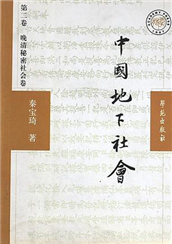 中國地下社會
第二卷 晚清秘密社会卷
秦宝琦 著
學苑出版社